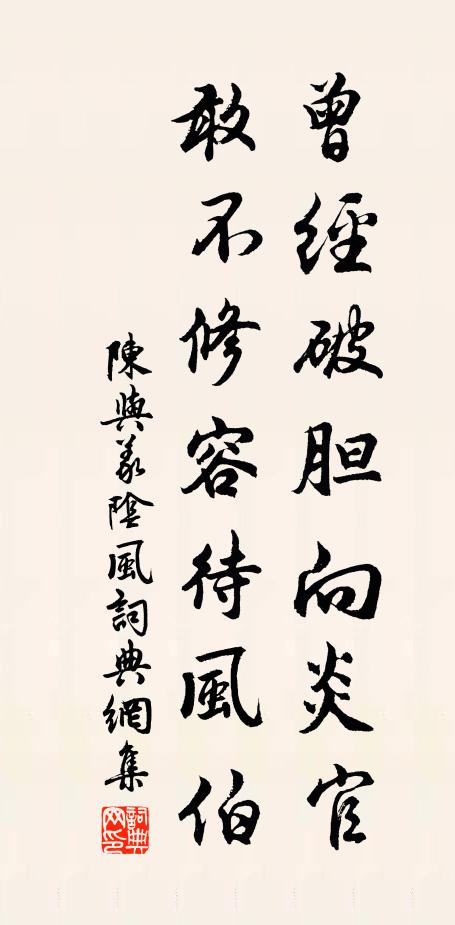 曾經破胆向炎官
敢不修容待風伯
陳與義陰風詞典網集
詞典網印